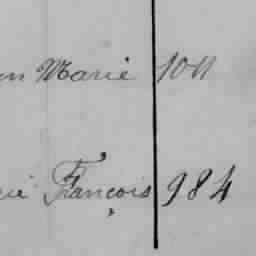 Marie 1011
François 984